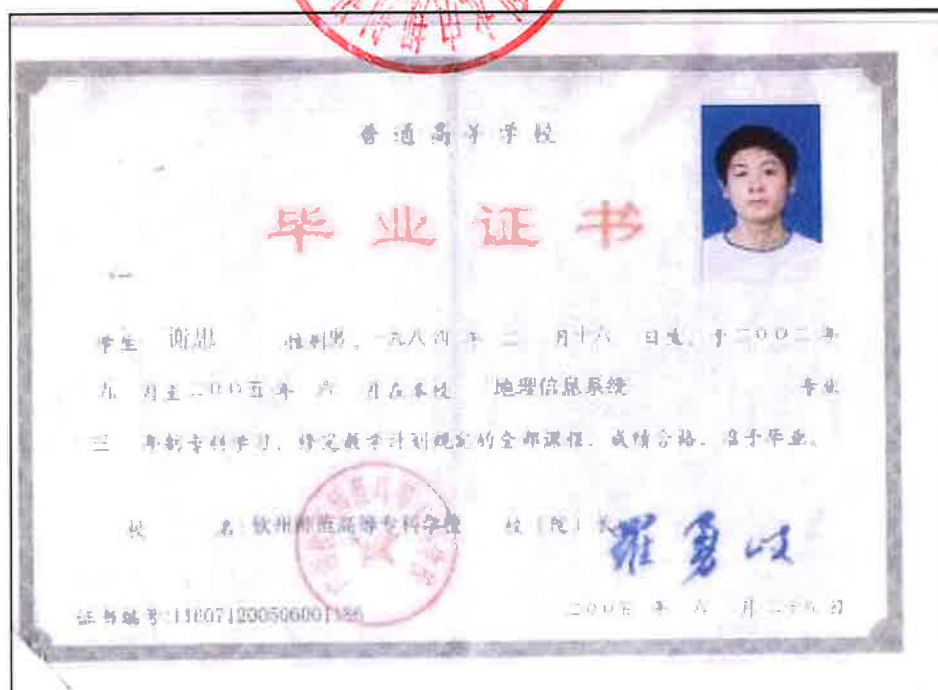 普通高等学校
毕业证书
学生 谢忠 性别男，一九八四年 二 月十六 日生，于二〇〇二年
九 月至二〇〇五年 六 月在本校 地理信息系统 专业
三 年制专科学习，修完教学计划规定的全部课程，成绩合格，准予毕业。
校 名：钦州师范高等专科学校 校（院）长
证书编号：
二〇〇五 年 六 月 日